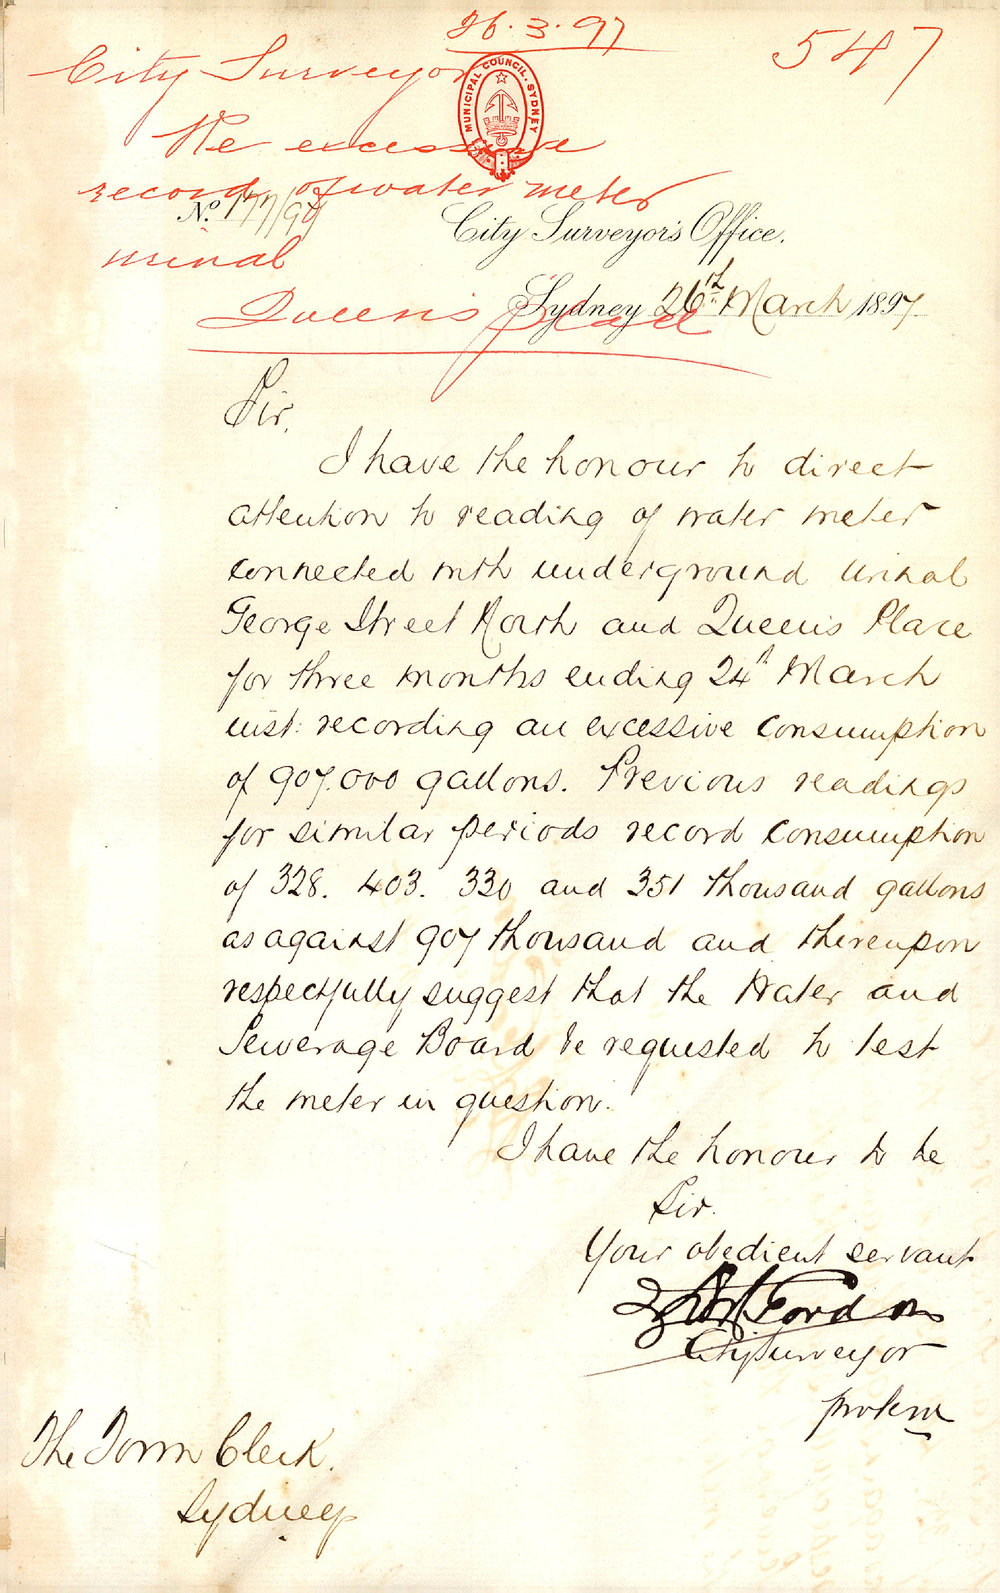 26.3.97
547
City Surveyor
Re excessive
record of water meter
urinal
Queen's Place
MUNICIPAL COUNCIL. SYDNEY
No. 177/97
City Surveyor's Office.
Sydney 26th March 1897
Sir,
I have the honour to direct
attention to reading of water meter
connected with underground urinal
George Street North and Queen's Place
for three months ending 24th March
inst: recording an excessive consumption
of 907.000 gallons. Previous readings
for similar periods record consumption
of 328. 403. 330 and 351 thousand gallons
as against 907 thousand and thereupon
respectfully suggest that the Water and
Sewerage Board be requested to test
the meter in question.
I have the honour to be
Sir.
Your obedient servant
Gordon
City Surveyor
protem
The Town Clerk.
Sydney